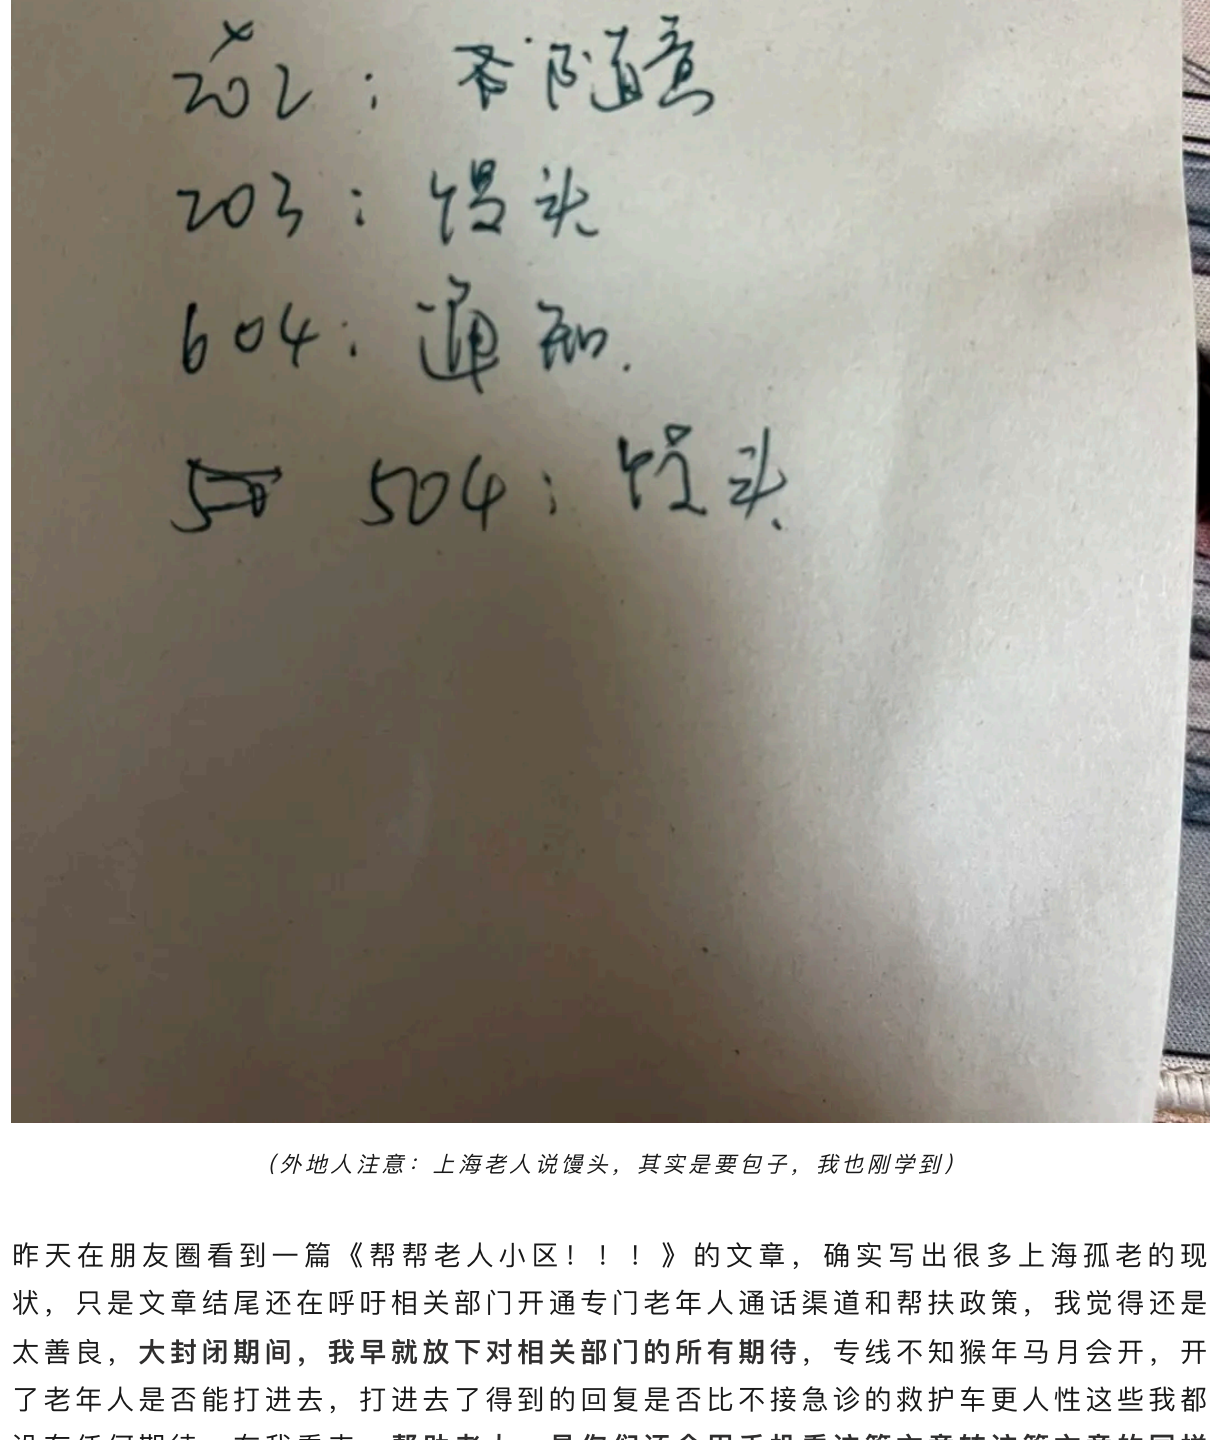 202：不.随意
203：馒头
604：通知.
504：馒头
（外地人注意：上海老人说馒头，其实是要包子，我也刚学到）
昨天在朋友圈看到一篇《帮帮老人小区！！！》的文章，确实写出很多上海孤老的现
状，只是文章结尾还在呼吁相关部门开通专门老年人通话渠道和帮扶政策，我觉得还是
太善良，大封闭期间，我早就放下对相关部门的所有期待，专线不知猴年马月会开，开
了老年人是否能打进去，打进去了得到的回复是否比不接急诊的救护车更人性这些我都
没有任何期待。在我看来，帮助老人，是你们还会用手机看这篇文章转这篇文章的同样